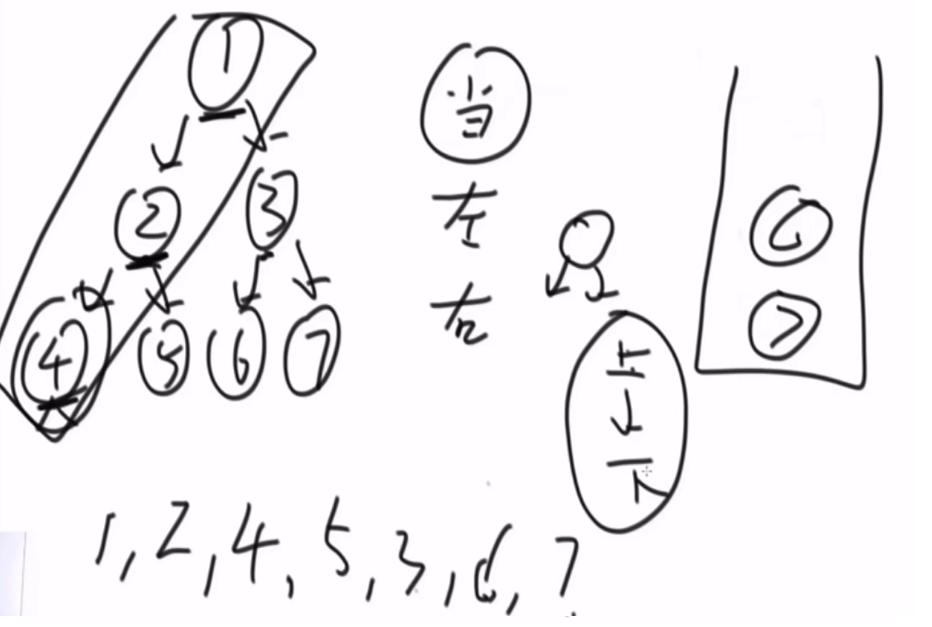 1
2 3
4 5 6 7
当
左
右
上
下
6
7
1,2,4,5,3,6,7